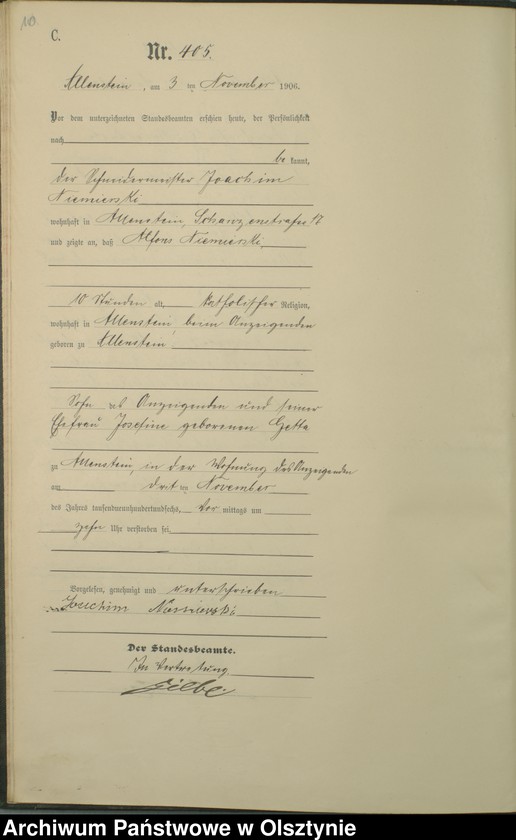 C.
Nr. 405.
Allenstein, am 3 ten November 1906.
Vor dem unterzeichneten Standesbeamten erschien heute, der Persönlichkeit
nach
be kannt,
der Schneidermeister Joachim
Niemierski
wohnhaft in Allenstein, Schanzenstraße 12
und zeigte an, daß Alfons Niemierski,
10 Stunden alt, katholischer Religion,
wohnhaft in Allenstein, beim Anzeigenden
geboren zu Allenstein
Sohn des Anzeigenden und seiner
Ehefrau Josefine geborenen
zu Allenstein, in der Wohnung des Anzeigenden
am drit ten November
des Jahres tausendneunhundertundsechs, Vor mittags um
zehn Uhr verstorben sei.
Vorgelesen, genehmigt und unterschrieben
Joachim
Der Standesbeamte.
In Vertretung
Archiwum Państwowe w Olsztynie